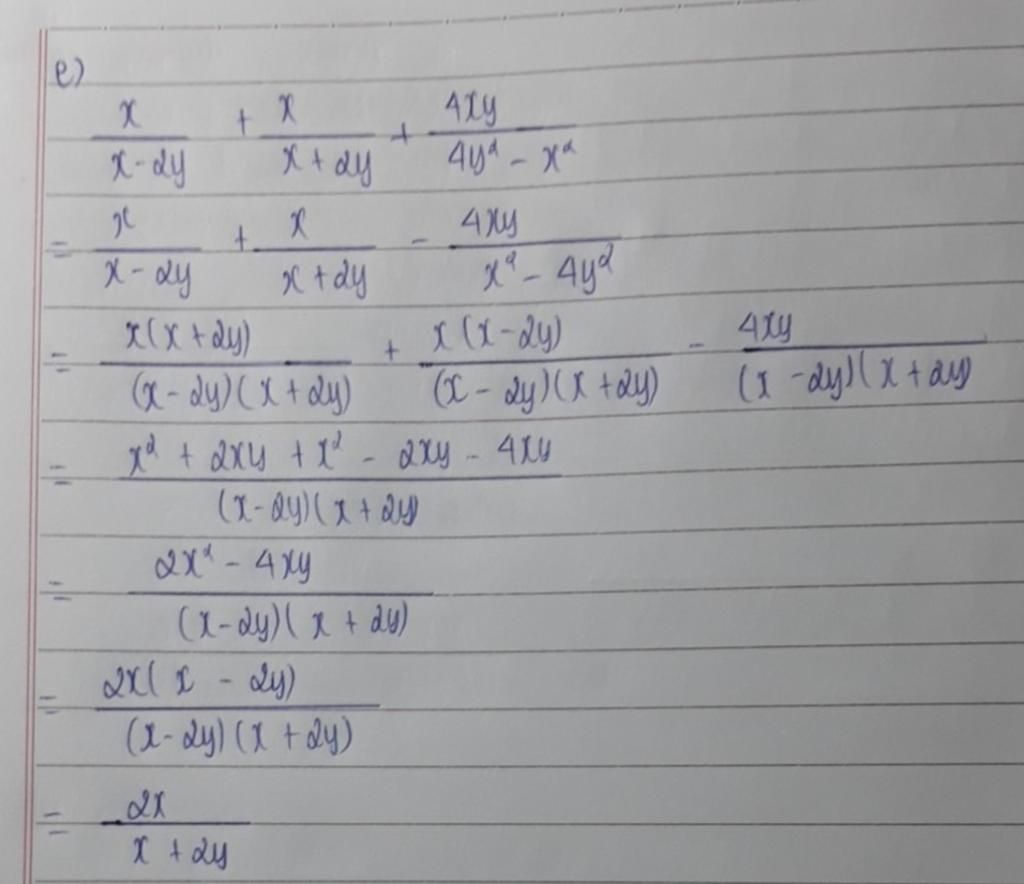 e)
x/(x-2y) + x/(x+2y) + 4xy/(4y² - x²)
= x/(x-2y) + x/(x+2y) - 4xy/(x² - 4y²)
= x(x+2y)/((x-2y)(x+2y)) + x(x-2y)/((x-2y)(x+2y)) - 4xy/((x-2y)(x+2y))
= (x² + 2xy + x² - 2xy - 4xy)/((x-2y)(x+2y))
= (2x² - 4xy)/((x-2y)(x+2y))
= 2x(x - 2y)/((x-2y)(x+2y))
= 2x/(x+2y)